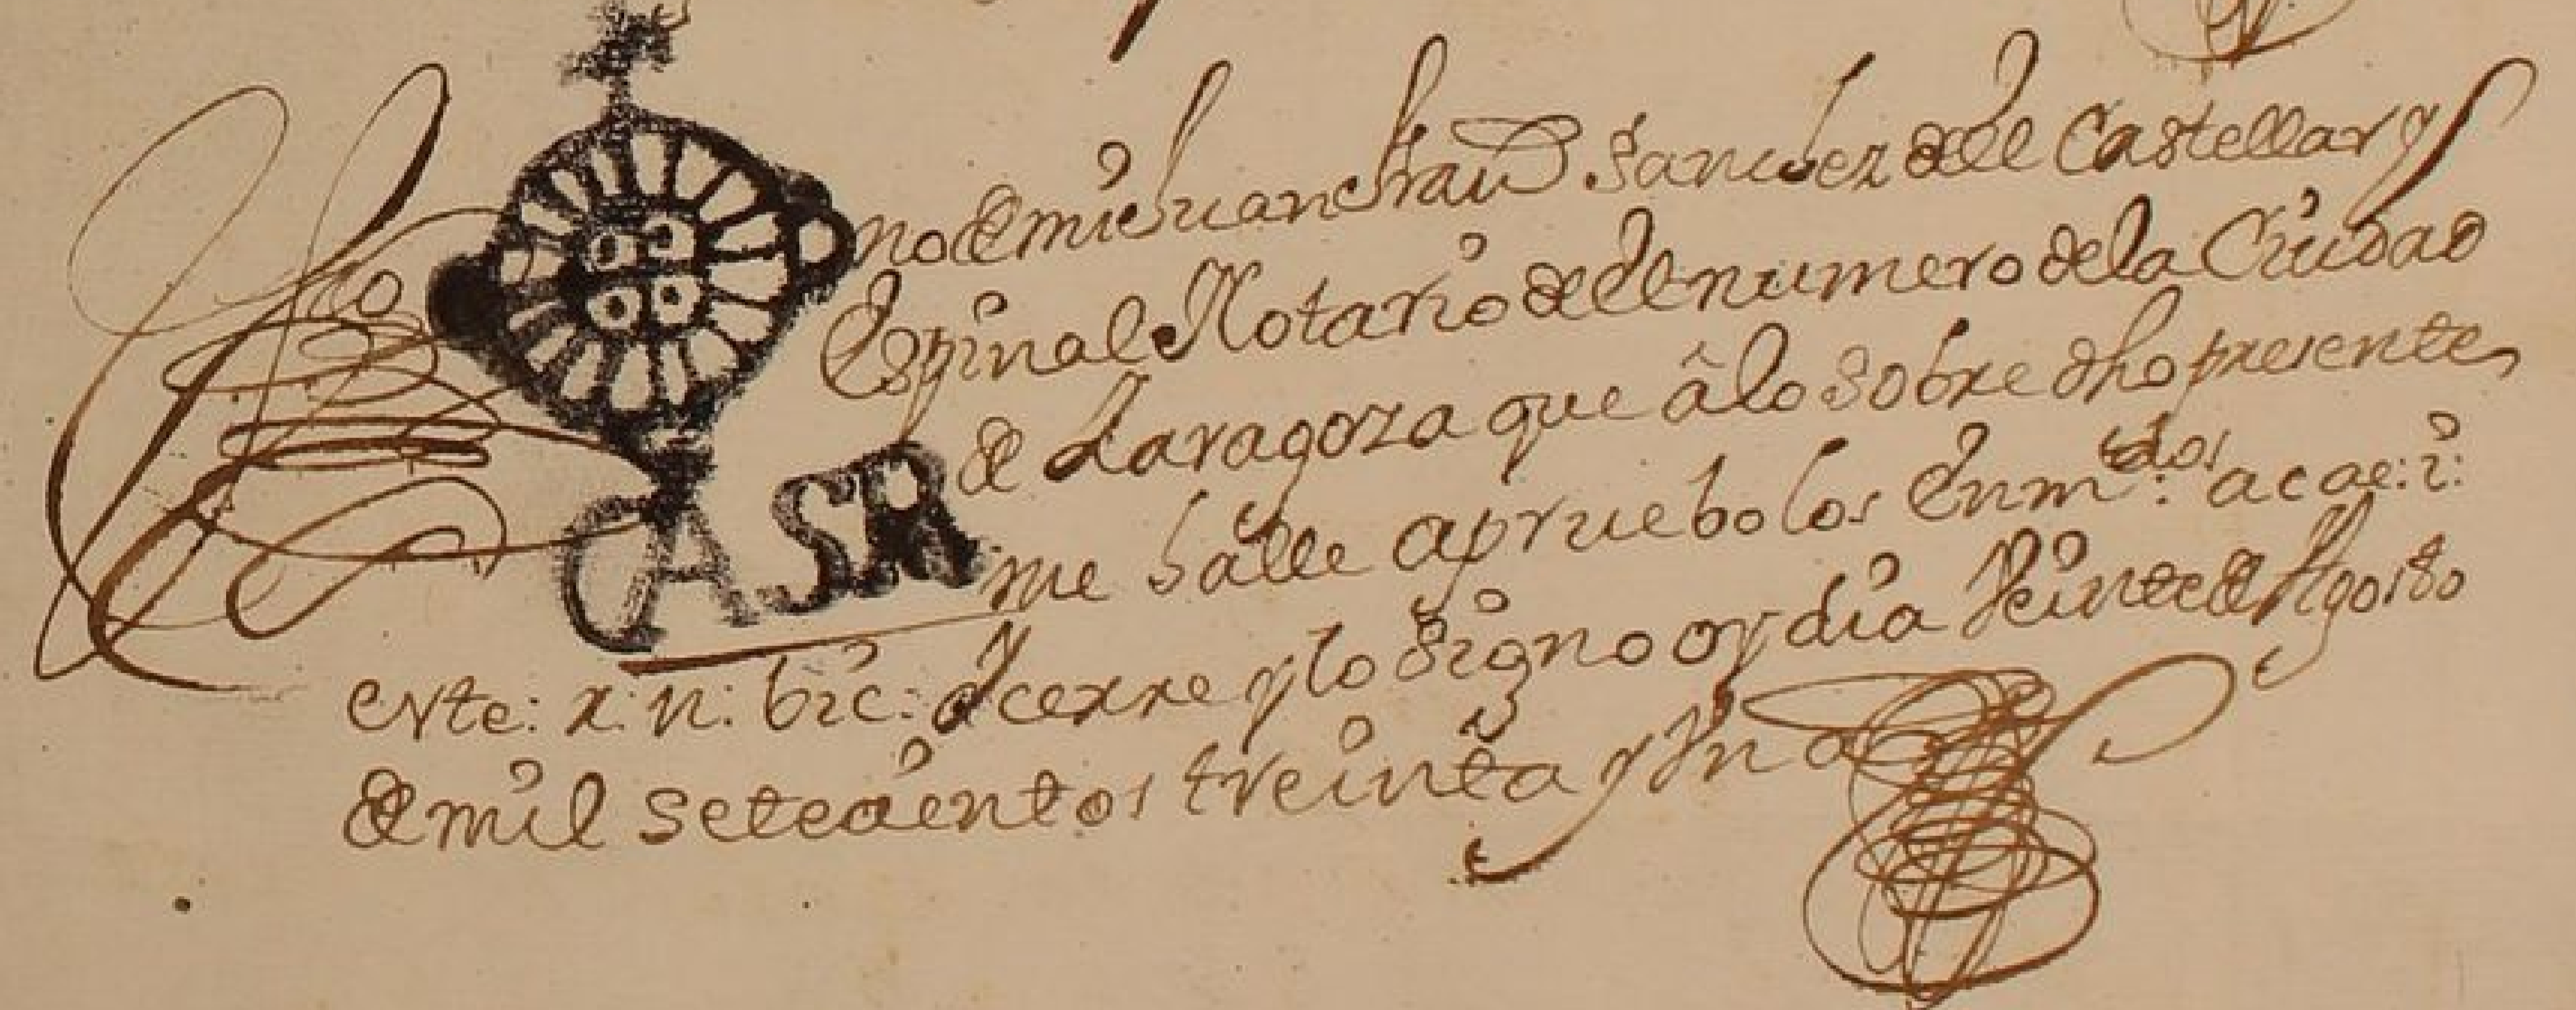 Sig no de mi Juan Fran.co Sanchez del Castellar y
Espinal Notario del numero dela Ciudad
de Zaragoza que â lo sobre dho presente
me halle apruebo los Enm.dos: acae: i:
CASR
este: x: n: bic: Y cerre y lo signo oy dia Veinte de Agosto
de mil setecientos treinta y Vno